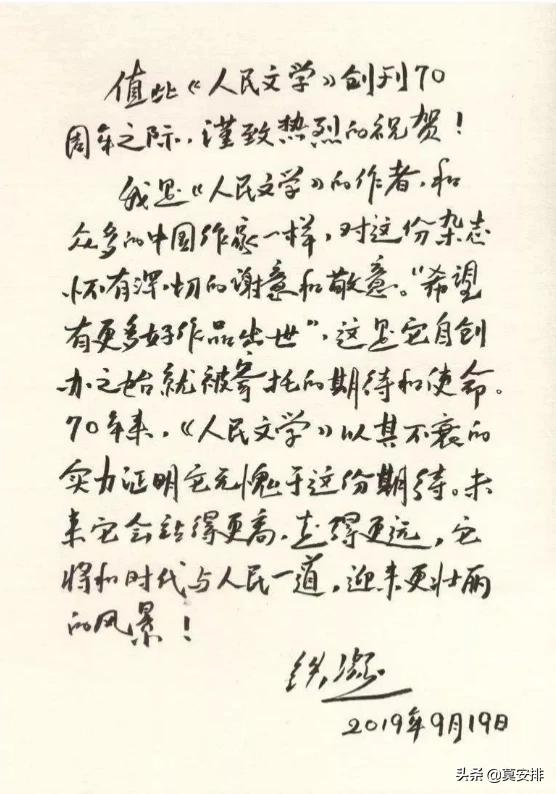 值此《人民文学》创刊70
周年之际，谨致热烈的祝贺！
我是《人民文学》的作者，和
众多的中国作家一样，对这份杂志
怀有深切的谢意和敬意。“希望
有更多好作品出世”，这是它自创
办之始就被寄托的期待和使命。
70年来，《人民文学》以其不衰的
实力证明它无愧于这份期待。未
来它会站得更高，走得更远，它
将和时代与人民一道，迎来更壮丽
的风景！
铁凝
2019年9月19日
头条@真安排